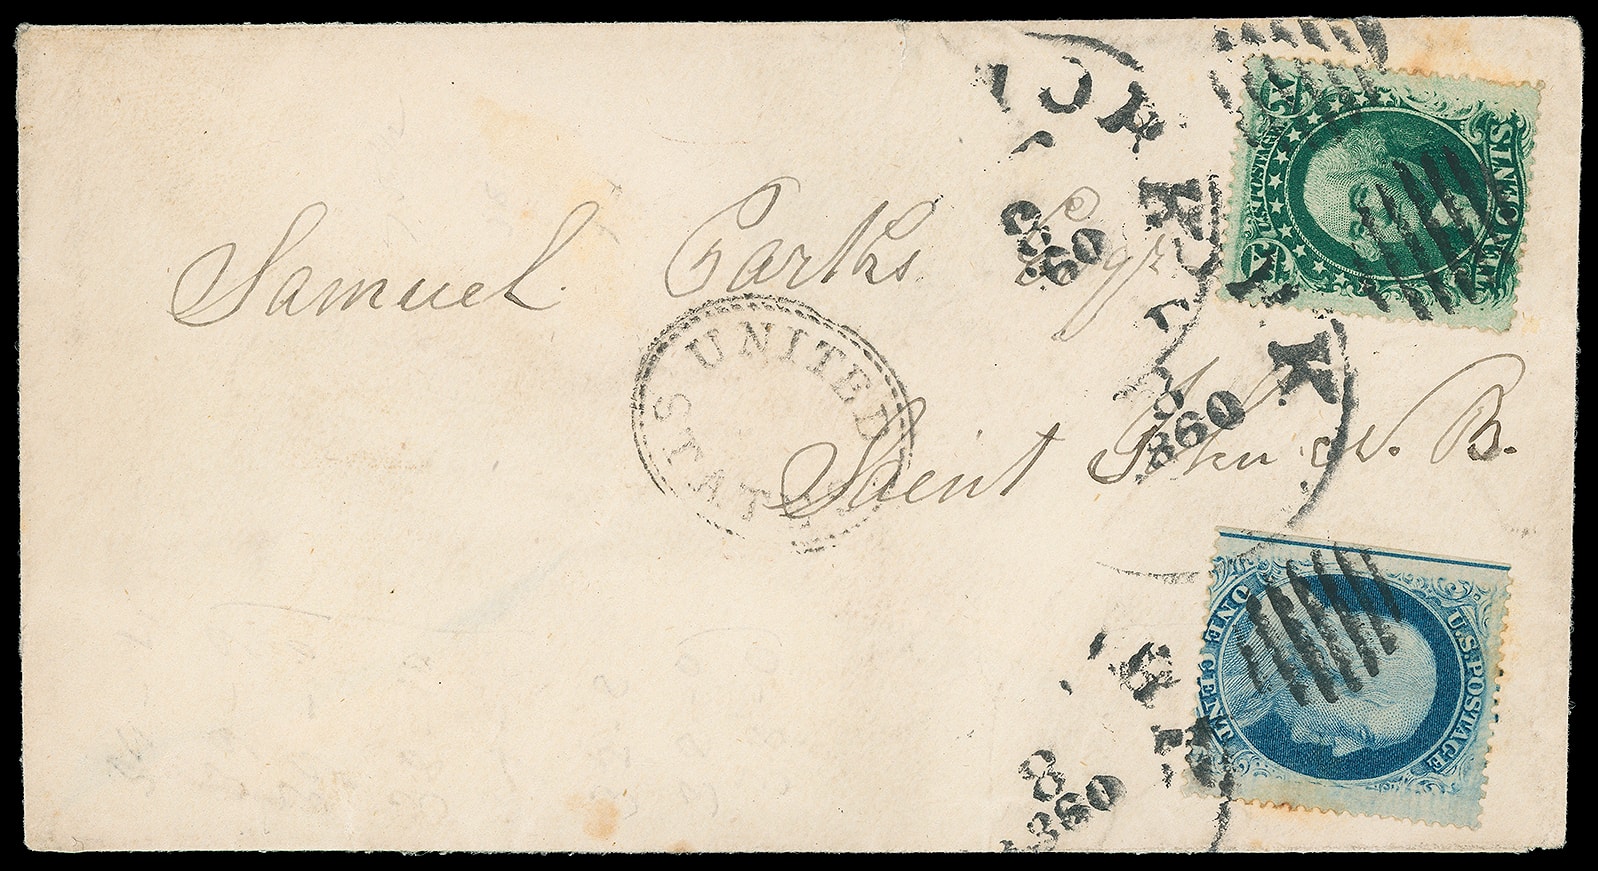 Samuel Parks Esqr
Saint John N. B.
UNITED STATES
YORK
1860
RK
8
1860
RK
8
1860
X U.S. POSTAGE X
TEN CENTS
U.S. POSTAGE
ONE CENT